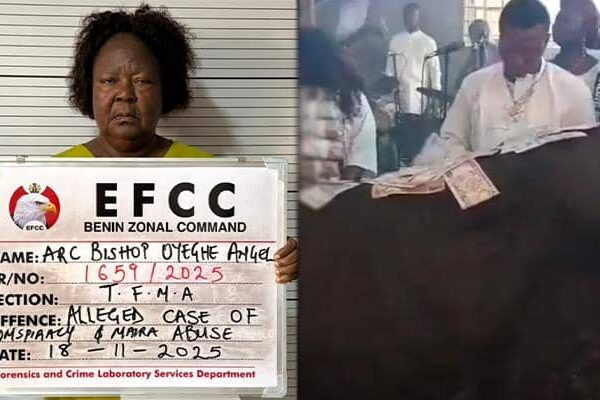 EFCC
BENIN ZONAL COMMAND
EFCC
NAME: ARC BISHOP OYEGHE ANGEL
CR/NO: 1659/2025
SECTION: T.F.M.A
OFFENCE: ALLEGED CASE OF
CONSPIRACY & NAIRA ABUSE
DATE: 18-11-2025
Forensics and Crime Laboratory Services Department